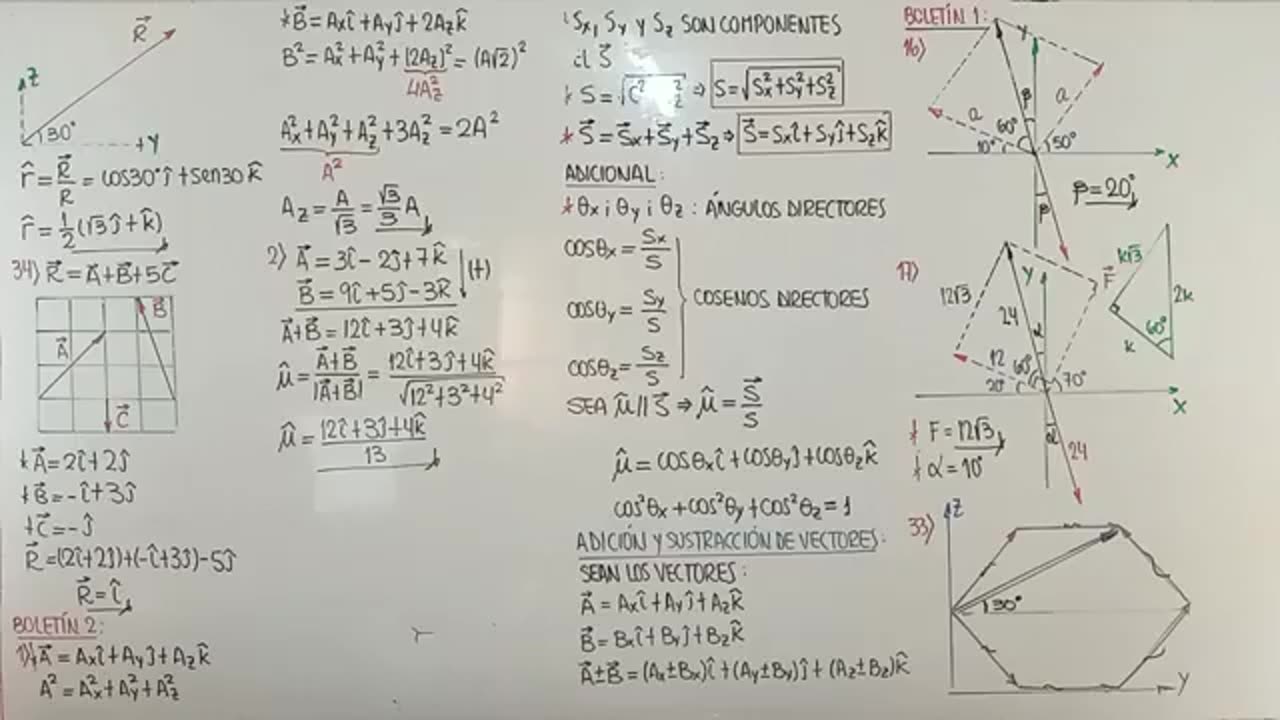 R⃗
Z
30°
+Y
r̂ = R⃗/R = cos30° ĵ + sen30 k̂
r̂ = 1/2 (√3 ĵ + k̂)
34) R⃗ = A⃗ + B⃗ + 5C⃗
B⃗
A⃗
C⃗
* A⃗ = 2î + 2ĵ
* B⃗ = -î + 3ĵ
* C⃗ = -ĵ
R⃗ = (2î + 2ĵ) + (-î + 3ĵ) - 5ĵ
R⃗ = î
BOLETÍN 2:
1) * A⃗ = Axî + Ayĵ + Azk̂
A² = Ax² + Ay² + Az²
* B⃗ = Axî + Ayĵ + 2Azk̂
B² = Ax² + Ay² + (2Az)² = (A√2)²
4Az²
Ax² + Ay² + Az² + 3Az² = 2A²
A²
Az = A/√3 = √3/3 A
2) A⃗ = 3î - 2ĵ + 7k̂
(+)
B⃗ = 9î + 5ĵ - 3k̂
A⃗ + B⃗ = 12î + 3ĵ + 4k̂
μ̂ = (A⃗ + B⃗)/|A⃗ + B⃗| = (12î + 3ĵ + 4k̂)/√(12² + 3² + 4²)
μ̂ = (12î + 3ĵ + 4k̂)/13
Sx, Sy y Sz SON COMPONENTES
S⃗
⇒ S = √(Sx² + Sy² + Sz²)
* S⃗ = S⃗x + S⃗y + S⃗z ⇒ S⃗ = Sxî + Syĵ + Szk̂
ADICIONAL:
* θx ; θy ; θz : ÁNGULOS DIRECTORES
cosθx = Sx/S
cosθy = Sy/S
COSENOS DIRECTORES
cosθz = Sz/S
SEA μ̂ // S⃗ ⇒ μ̂ = S⃗/S
μ̂ = cosθxî + cosθyĵ + cosθzk̂
cos²θx + cos²θy + cos²θz = 1
ADICIÓN Y SUSTRACCIÓN DE VECTORES:
SEAN LOS VECTORES:
A⃗ = Axî + Ayĵ + Azk̂
B⃗ = Bxî + Byĵ + Bzk̂
A⃗ ± B⃗ = (Ax ± Bx)î + (Ay ± By)ĵ + (Az ± Bz)k̂
BOLETÍN 1:
16)
y
a
β
a
60°
10°
50°
X
β
β = 20°
17)
Y
F⃗
12√3
24
α
12
60°
20°
70°
X
α
24
k√3
2k
60°
k
* F = 12√3
* α = 10°
33)
Z
30°
Y